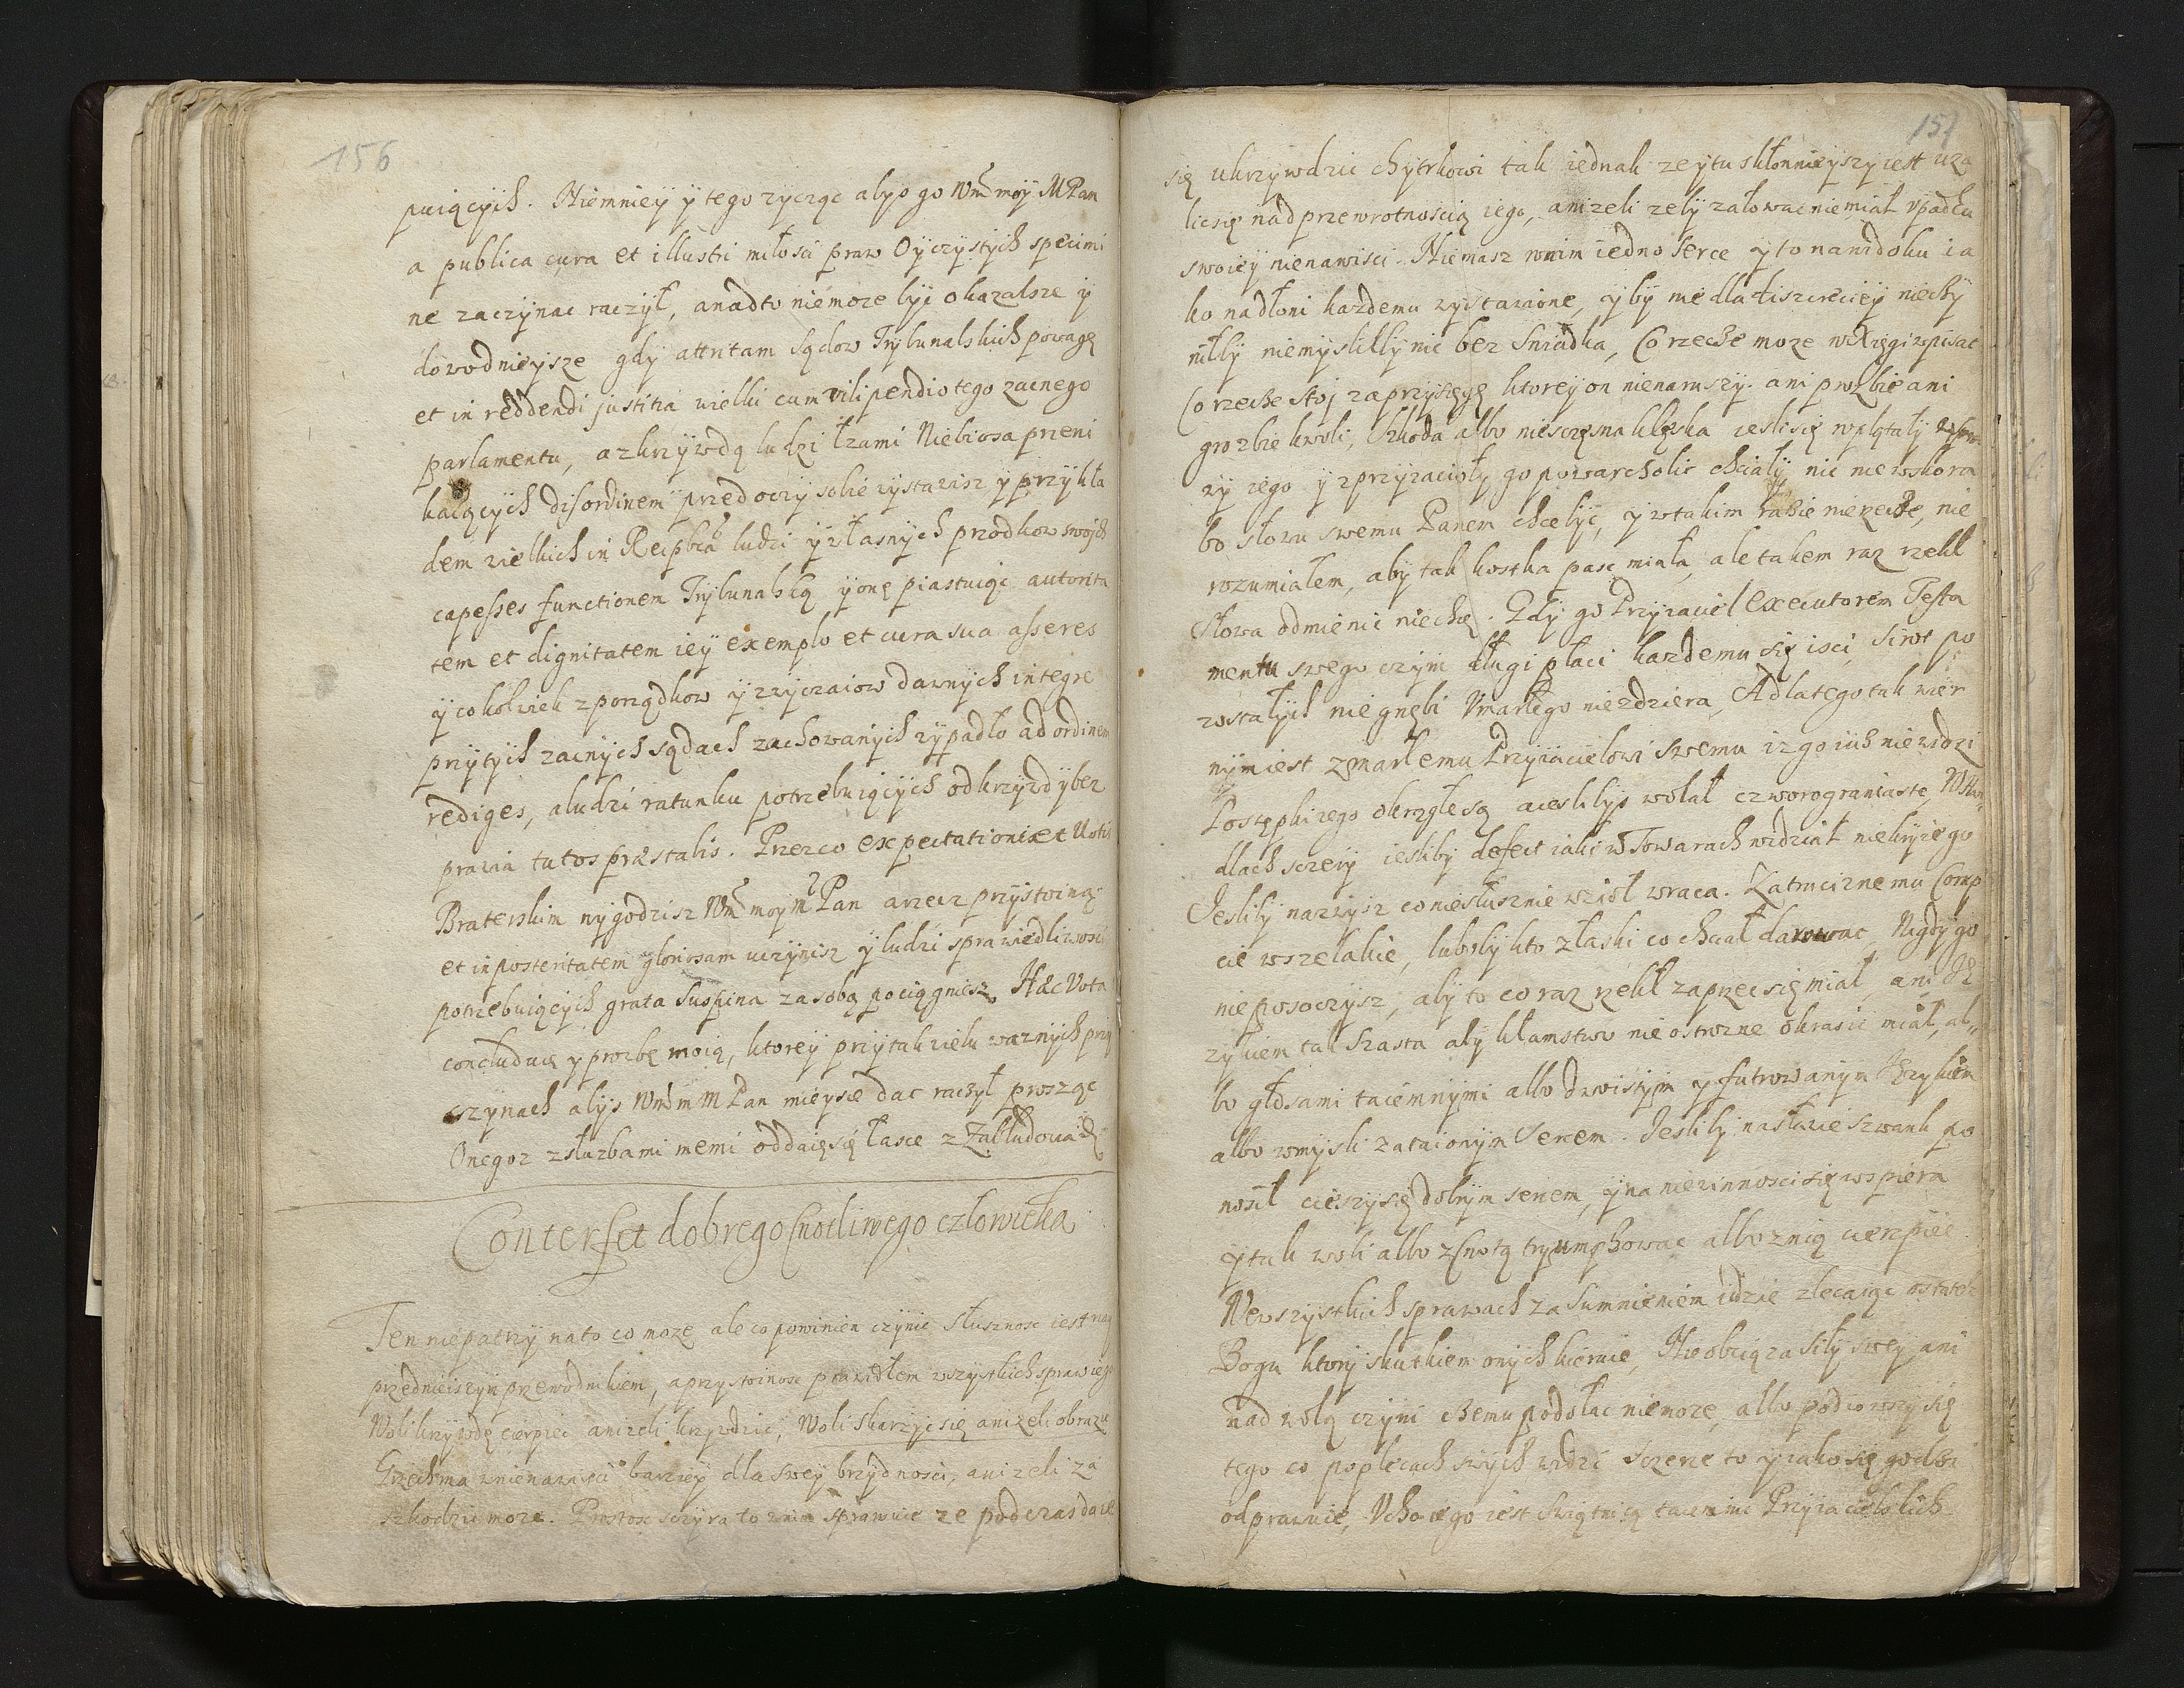 156
puiących. Niemniey y tego zycząc abys go Wmć moy MPan
a publica cura et illustri miłosci praw Oyczystych specimi
ne zaczynac raczył, a nadto niemoze byc okazalsze y
dowodnieysze gdy attritam sądow Trybunalskich powagę
et in reddendi justitia wielki cum vilipendio tego zacnego
parlamentu, a z krzywdą ludzi łzami Niebiosa przeni
kaiących disordinem przed oczy sobie wystawisz y przykła
dem wielkich in Reipbca ludzi y własnych przodkow swoich
capesses functionem Trybunalską y onę piastuiąc autorita
tem et dignitatem iey exemplo et cura sua asseres
y cokolwiek z porządkow y zwyczaiow dawnych integre
przy tych zacnych sądach zachowanych wypadło ad ordinem
rediges, a ludzi ratunku potrzebuiących od krzywdy bez
prawia tutos præstabis. Przez co expectationi et Votis
Braterskim wygodzisz Wmć moy M Pan a rzecz przystoiną
et in posteritatem gloriosam uczynisz y ludzi sprawiedliwosci
potrzebuiących grata suspiria za sobą pociągniesz. Hæc Vota
concluduię y prozbę moią, ktorey przy tak wielu waznych przy
czynach abys Wmć m M Pan mieysce dac raczył prosząc
Onegoz z słuzbami memi oddaię się łasce z Zabłudowa

Conterfet dobrego Cnotliwego człowieka

Ten niepatrzy na to co moze ale co powinien czynic słusznosc iest nay
przednieiszym przewodnikiem, a przystoinosc prawidłem wszystkich spraw iego
Woli krzywdę cierpiec anizeli krzywdzic, Woli skarzyc się anizeli obrazic
Grzech ma w nienawisci barziey dla swey brzydnosci, anizeli za
szkodzic moze. Prostosc sczyra to w nim sprawuie ze podczas da

157
się ukrzywdzic chytrkowi tak iednak ze y tu skłonnieyszy iest uza
lic się nad przewrotnoscią iego, anizeli zeby załowac niemiał upadku
swoiey nienawisci. Niemasz w nim iedno serce y to na widoku ia
ko na dłoni kazdemu wystawione, y by nie dla
niłby niemyslilby nic bez swiadka, Co rzecze moze w Xięgi wpisac
Co rzecze stoj za przysięgę ktorey on nienaruszy. ani prozbie ani
grozbie kwoli, szkoda albo niesczęsna klęska iesli się wplątały
wy iego y z przyiacioły go powarcholic chciały nic nie wskora
bo słowu swemu Panem chce byc, y w takim razie nierzecze, nie
rozumiałem, aby tak kostka pasc miała, ale takem raz rzekł
Słowa odmienic niechcę. Gdy go Przyiaciel Executorem Testa
mentu swego czyni długi płaci kazdemu się isci, sirot po
zostałych nie gnębi Umarłego niezdziera, A dlatego tak wier
nym iest zmarłemu Przyiacielowi swemu iz go iuz niewidzi
Postępki iego okrągłe są a iesliby wolał czworograniaste, W Han
dlach sczery iesliby defect iaki w Towarach widział niekryie go
Jesliby nazwysz co niesłusznie wziął wraca. Zatrucizne mu Comp
cie wszelakie, luboby kto z łaski co chciał darowac, Nigdy go
nie posoczysz, aby to co raz rzekł zaprzec się miał, ani Ję
zykiem tak szasta aby kłamstwo nieostrozne okrasic miał, al„
bo głosami taiemnymi albo dwoistym y futrowanym Językiem
albo w mysli zataionym sensem. Jesliby na sławie szwank po
nosił cieszy się dobrym sensem, y na niewinnosci się wspiera
y tak woli albo z Cnotą tryumphowac albo z nią cierpiec.
We wszystkich sprawach za sumnieniem idzie zlecaiąc ostatek
Bogu ktory skutkiem onych kieruie, Nie obciąza siły swey ani
nad wolą czyni czemu podołac niemoze, albo podiowszy się
tego co po plecach swych widzi sczerze to y iako się godzi
odprawuie, Ucho iego iest Swiątnicą taiemnic Przyiacielskich